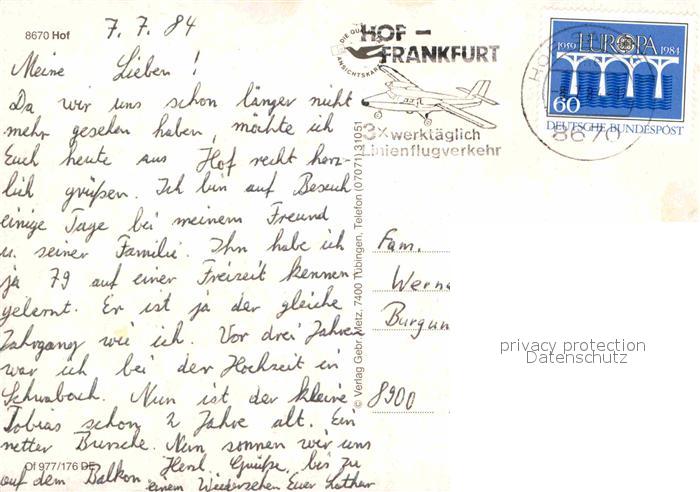 8670 Hof
7.7.84
Meine Lieben!
Da wir uns schon länger nicht
mehr gesehen haben, möchte ich
Euch heute aus Hof recht herz-
lich grüßen. Ich bin auf Besuch
einige Tage bei meinem Freund
u. seiner Familie. Ihn habe ich
ja 79 auf einer Freizeit kennen
gelernt. Er ist ja der gleiche
Jahrgang wie ich. Vor drei Jahren
war ich bei der Hochzeit in
Schwabach. Nun ist der kleine
Tobias schon 2 Jahre alt. Ein
netter Bursche. Nun sonnen wir uns
auf dem Balkon. Herzl. Grüße, bis zu
einem Wiedersehen Euer Lothar
Of 977/176 DE
© Verlag Gebr. Metz, 7400 Tübingen, Telefon (07071) 31051
DIE
ANSICHTSKARTE
HOF –
FRANKFURT
3x werktäglich
Linienflugverkehr
HO
8670
1959 EUROPA 1984
60
DEUTSCHE BUNDESPOST
Fam.
Wern
Burgun
8900
privacy protection
Datenschutz